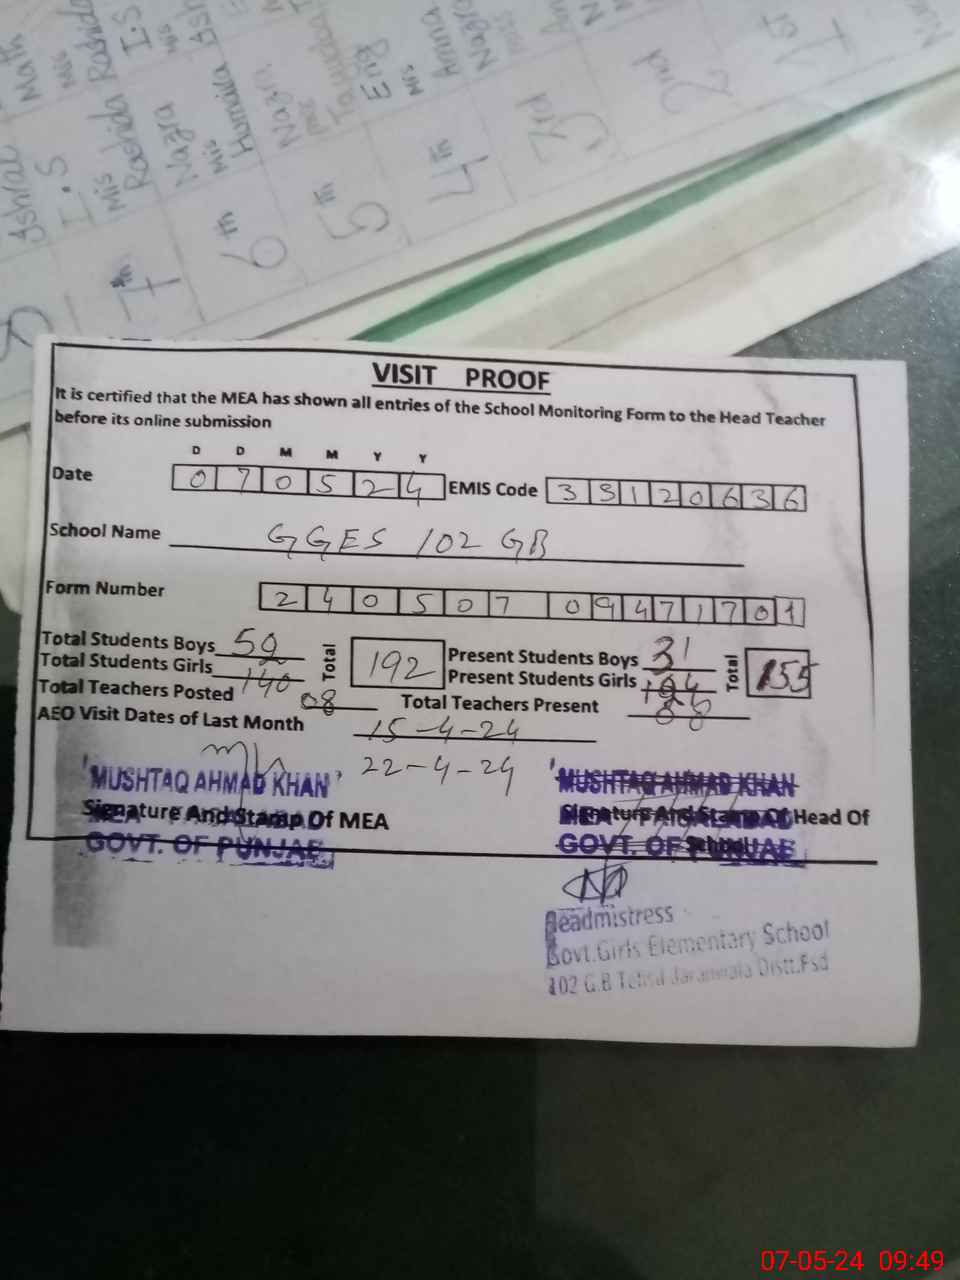 Math
I.S
Mis
Rashida
Nagra
Mis
Humaira
7th
6th
5th
Eng
Mis
Amna
Nagra
4th
3rd
2nd
1st
VISIT PROOF
It is certified that the MEA has shown all entries of the School Monitoring Form to the Head Teacher
before its online submission
D D M M Y Y
Date 0 7 0 5 2 4 EMIS Code 3 3 1 2 0 6 3 6
School Name GGES 102 GB
Form Number 2 4 0 5 0 7 0 9 4 7 1 7 0 1
Total Students Boys Total 192 Present Students Boys 31 Total 155
Total Students Girls 140 Present Students Girls
Total Teachers Posted 08 Total Teachers Present
AEO Visit Dates of Last Month 15-4-24
22-4-24
MUSHTAQ AHMAD KHAN MUSHTAQ AHMAD KHAN
Signature And Stamp Of MEA Signature And Stamp Of Head Of
School
GOVT. OF PUNJAB GOVT. OF PUNJAB
Headmistress
Govt.Girls Elementary School
102 G.B Tehsil Jaranwala Distt.Fsd
07-05-24 09:49